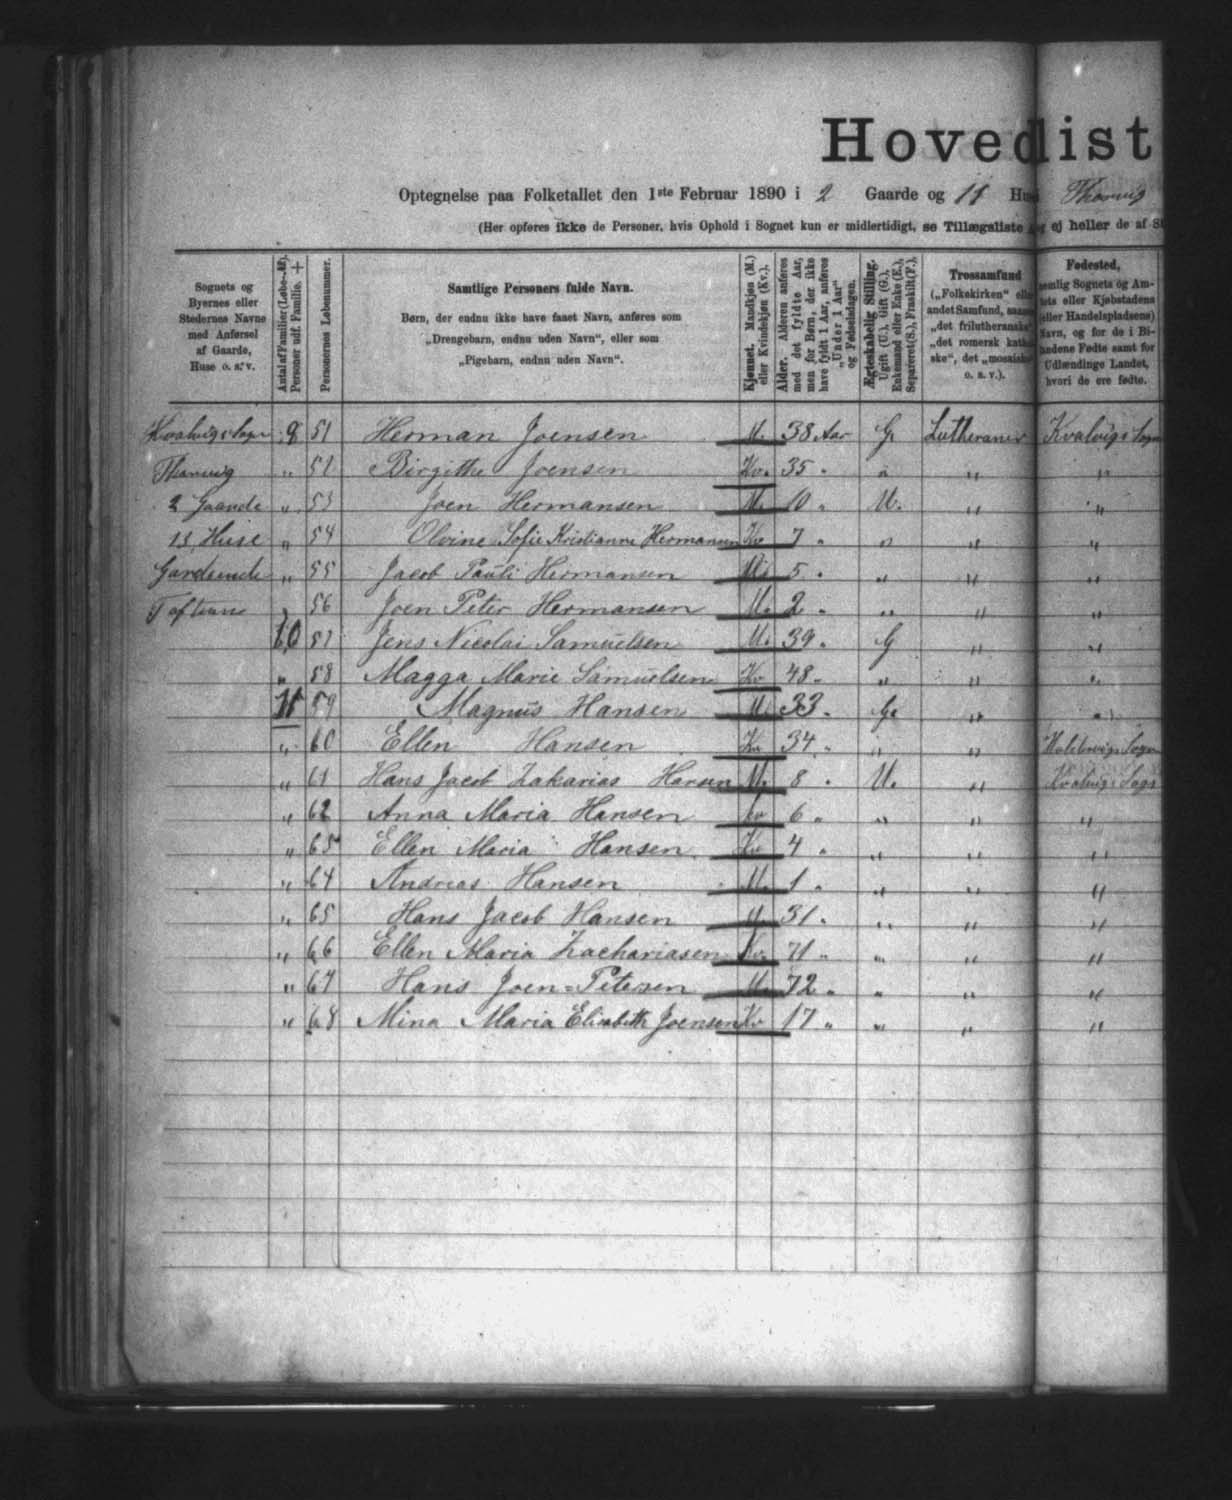 Hovedlist
Optegnelse paa Folketallet den 1ste Februar 1890 i 2 Gaarde og 11 Huse Thorvig
(Her opføres ikke de Personer, hvis Ophold i Sognet kun er midlertidigt, se Tillægsliste ej heller de af
Sognets og
Byernes eller
Stedernes Navne
med Anførsel
af Gaarde,
Huse o. s. v.
Antal af Familier (Løbe-№).
Personer udf. Familie. +
Personernes Løbenummer.
Samtlige Personers fulde Navn.
Børn, der endnu ikke have faaet Navn, anføres som
„Drengebarn, endnu uden Navn“, eller som
„Pigebarn, endnu uden Navn“.
Kjønnet. Mandkjøn (M.)
eller Kvindekjøn (Kv.).
Alder. Alderen anføres
med det fyldte Aar,
men for Børn, der ikke
have fyldt 1 Aar, anføres
„Under 1 Aar“
og Fødselsdagen.
Ægteskabelig Stilling.
Ugift (U.), Gift (G.),
Enkemand eller Enke (E.),
Separeret (S.), Fraskilt (F.).
Trossamfund
(„Folkekirken“
andet Samfund,
„det frilutheranske“
„det romersk
ske“, det „mosaiske“
o. s. v.).
Fødested,
nemlig Sognets og Am-
tets eller Kjøbstadens
(eller Handelspladsens)
Navn, og for de i Bi-
landene Fødte samt for
Udlændinge Landet,
hvori de ere fødte.
Kvalvigs Sogn 9 51 Herman Joensen M. 38 Aar G. Lutheraner Kvalvigs Sogn
Thorvig „ 52 Birgithe Joensen Kv. 35 „ „ „ „
2 Gaarde „ 53 Joen Hermansen M. 10 „ U. „ „
13 Huse „ 54 Olvine Sofie Kristianne Hermansen Kv 7 „ „ „ „
„ 55 Jacob Pauli Hermansen M. 5 „ „ „ „
„ 56 Joen Peter Hermansen M. 2 „ „ „ „
10 57 Jens Nicolai Samuelsen M. 39 „ G „ „
„ 58 Magga Marie Samuelsen Kv 48 „ „ „ „
11 59 Magnus Hansen M. 33 „ G. „ „
„ 60 Ellen Hansen Kv 34 „ „ „ Sogn
„ 61 Hans Jacob Zakarias Hansen M. 8 „ U. „ Kvalvigs Sogn
„ 62 Anna Maria Hansen Kv 6 „ „ „ „
„ 63 Ellen Maria Hansen Kv 4 „ „ „ „
„ 64 Andreas Hansen M. 1 „ „ „ „
„ 65 Hans Jacob Hansen M. 31 „ „ „ „
„ 66 Ellen Maria Zachariasen Kv. 71 „ „ „ „
„ 67 Hans Joen=Petersen M. 72 „ „ „ „
„ 68 Mina Maria Elisabeth Joensen Kv 17 „ „ „ „